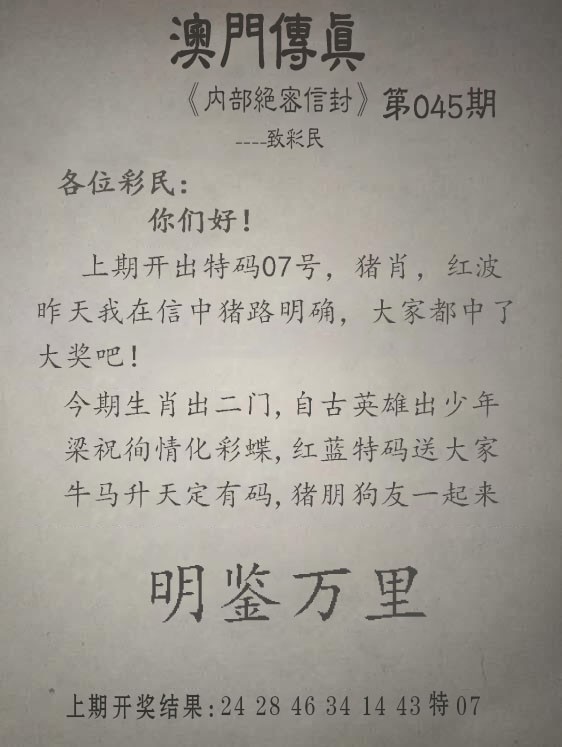 澳門傳眞
《内部絕密信封》第045期
----致彩民
各位彩民：
你们好！
上期开出特码07号，猪肖，红波
昨天我在信中猪路明确，大家都中了
大奖吧！
今期生肖出二门,自古英雄出少年
梁祝徇情化彩蝶,红蓝特码送大家
牛马升天定有码,猪朋狗友一起来
明鉴万里
上期开奖结果:24 28 46 34 14 43 特 07